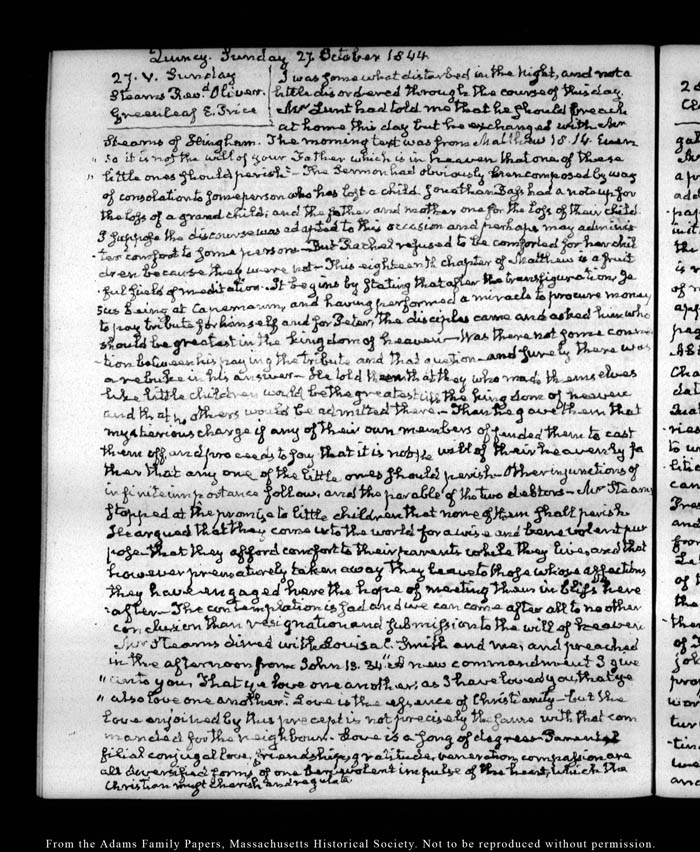 Quincy. Sunday 27 October 1844
27. V. Sunday
Stearns Rev.d Oliver.
Greenleaf E. Price
I was somewhat disturbed in the night, and not a
little disordered through the course of this day.
Mr Lunt had told me that he should preach
at home this day but he exchanged with Mr
Stearns of Hingham. The morning text was from Matthew 18.14. Even
" so it is not the will of your Father which is in heaven that one of these
" little ones should perish." The Sermon had obviously been composed by way
of consolation to some person who has lost a child. Jonathan Bass had a note up for
the loss of a grand child; and the father and mother one for the loss of their child.
I suppose the discourse was adapted to this occasion and perhaps may adminis-
-ter comfort to some persons— But Rachel refused to be comforted for her chil
dren because they were not— This eighteenth chapter of Matthew is a fruit
-ful field of meditation. It begins by stating that after the transfiguration, Je
sus being at Capernaum, and having performed a miracle to procure money
to pay tribute for himself and for Peter, the disciples came and asked him who
should be greatest in the kingdom of heaven— Was there not some connec
-tion between his paying the tribute and that question— and surely there was
a rebuke in his answer— He told them that they who made themselves
like little children would be the greatest in the kingdom of heaven
and that no others would be admitted there.— Then he gave them that
mysterious charge if any of their own members offended them to cast
them off, and proceeds to say that it is not the will of their heavenly fa
ther that any one of the little ones should perish— Other injunctions of
infinite importance follow, and the parable of the two debtors— Mr Stearns
stopped at the promise to little children that none of them shall perish
He argued that they come into the world for a wise and benevolent pur
pose— that they afford comfort to their parents while they live, and that
however prematurely taken away they leave to those whose affections
they have engaged have the hope of meeting them in bliss here
-after— The contemplation is sad and we can come after all to no other
conclusion than resignation and submission to the will of heaven
Mr Stearns dined with Louisa C. Smith and me, and preached
in the afternoon from John 13. 34. "A new commandment I give
" unto you, That ye love one another; as I have loved you, that ye
" also love one another." Love is the essence of Christianity— but the
love enjoined by this precept is not precisely the same with that com
manded for the neighbour. Love is a song of degrees— Parental
filial conjugal love, friendship, gratitude, veneration, compassion are
all diversified forms of one benevolent impulse of the heart, which the
Christian must cherish and regulate
From the Adams Family Papers, Massachusetts Historical Society. Not to be reproduced without permission.